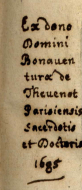 Ex dono
Domini
Bonaven
turæ de
Thevenot
Parisiensis
Sacerdotis
et Doctoris
1685